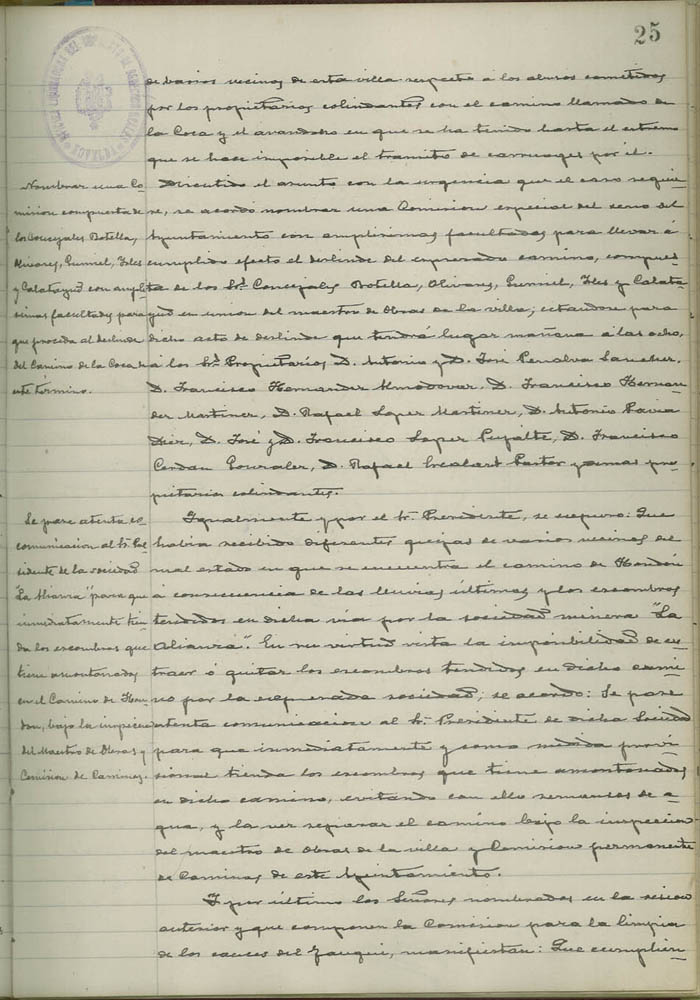 25
de varios vecinos de esta villa respecto a los abusos cometidos
por los propietarios colindantes con el camino llamado de
la Coca y el avanadero en que se ha tenido hasta el extremo
que se hace imposible el transito de carruages por él.
Nombrar una Co-
mision compuesta de
los Concejales Botella,
Olivares, Gumiel, Isles
y Calatayud con ampli-
simas facultades para
que proceda al deslinde
del Camino de la Coca de
este término.
Discutido el asunto con la urgencia que el caso requie-
re, se acordó nombrar una Comision especial del seno del
Ayuntamiento con amplisimas facultades para llevar á
cumplido efecto el deslinde del expresado camino, compues-
ta de los Sres. Concejales Botella, Olivares, Gumiel, Isles y Calata-
yud en union del maestro de Obras de la villa; citandose para
dicho acto de deslinde que tendrá lugar mañana á las ocho,
á los Sres. Propietarios, D. Antonio y D. José Penalva Sanchez,
D. Francisco Hernandez Almodovar, D. Francisco Hernan-
dez Martinez, D. Rafael Lopez Martinez, D. Antonio Pavia
Diez, D. José y D. Francisco Lopez Pujalte, D. Francisco
Cerdan Gonzalez, D. Rafael Escolart Pastor y demas pro-
pietarios colindantes.
Se pase atenta co-
municacion al Sr. Pre-
sidente de la sociedad
"La Alianza" para que
inmediatamente tien-
da los escombros que
tiene amontonados
en el Camino de Hon-
don, bajo la inspeccion
del Maestro de Obras y
Comision de Caminos.
Igualmente y por el Sr. Presidente, se expuso: Que
habia recibido diferentes quejas de varios vecinos del
mal estado en que se encuentra el camino de Hondón
á consecuencia de las lluvias últimas y los escombros
tendidos en dicha via por la sociedad minera "La
Alianza". En su virtud vista la imposibilidad de ex-
traer ó quitar los escombros tendidos en dicho cami-
no por la expresada sociedad; se acordó: Se pase
atenta comunicacion al Sr. Presidente de dicha Sociedad
para que inmediatamente y como medida provi-
sional tienda los escombros que tiene amontonados
en dicho camino, evitando con ello remansos de a-
gua, y la vez reparar el camino bajo la inspeccion
del maestro de Obras de la villa y Comision permanente
de Caminos de este Ayuntamiento.
Y por último los Señores nombrados en la sesion
anterior y que componen la Comision para la limpia
de los cauces del Fauqui, manifiestan: Que cumplien-